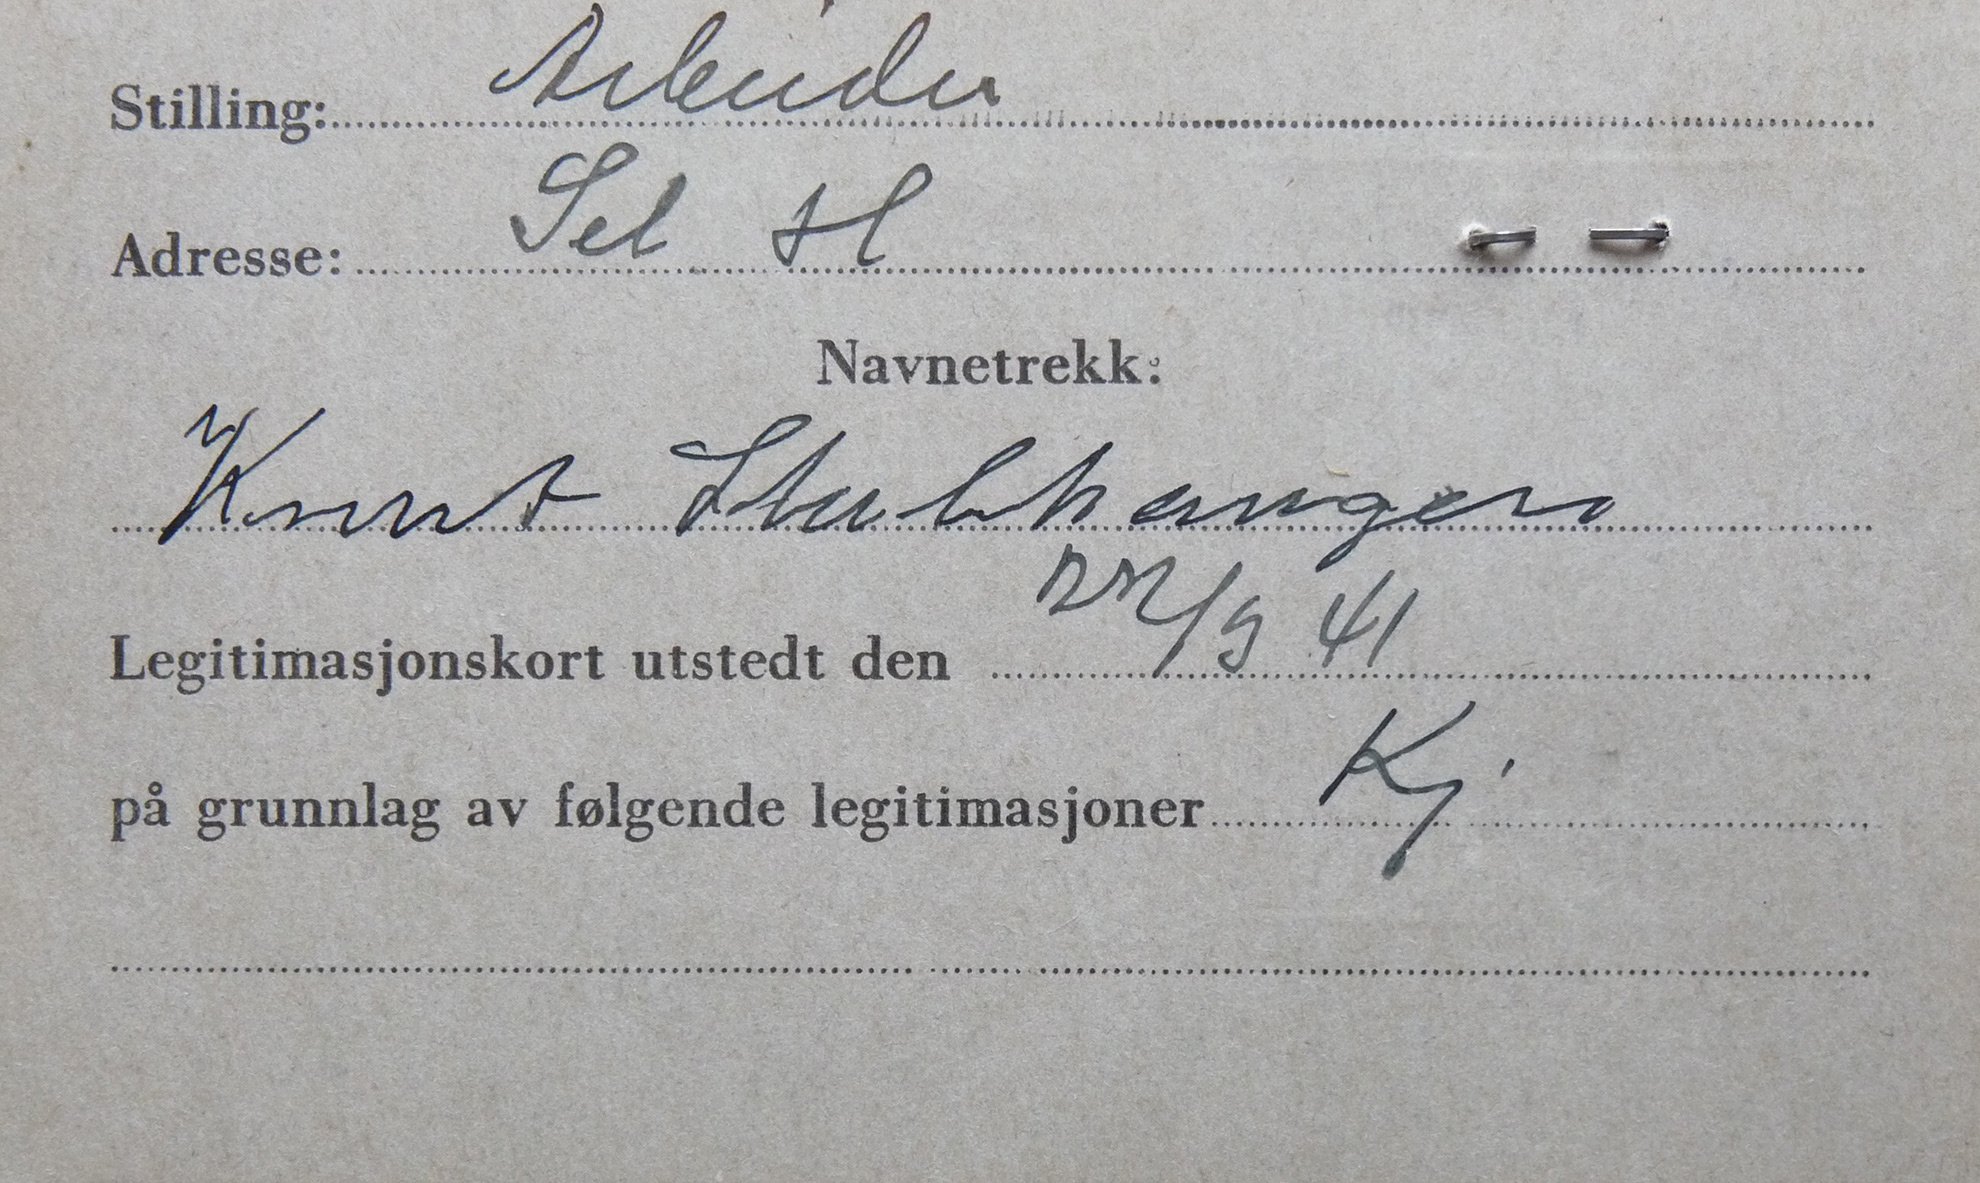 Stilling: Arbeider
Adresse: Sel H
Navnetrekk:
Knut Stubhaugen
Legitimasjonskort utstedt den 22/9 41
på grunnlag av følgende legitimasjoner Kj